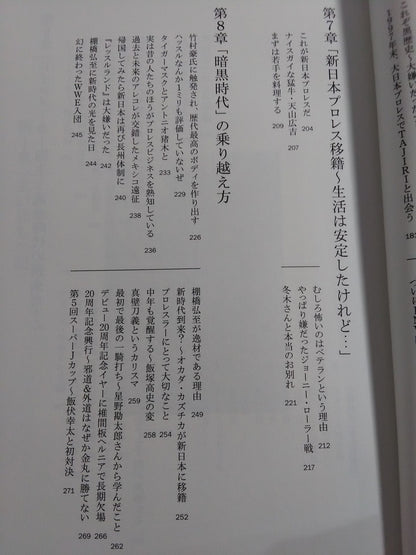 これが〝黒歴史〜大嫌い
1997年末、大日本プロレスでTAJIRIと出会う
181
第7章「新日本プロレス移籍〜生活は安定したけれど…」
これが新日本プロレスだ 204
ナイスガイな猛牛・天山広吉 207
まずは若手を料理する 209
むしろ怖いのはベテランという理由 212
やっぱり嫌だったジョーニー・ローラー戦 217
冬木さんと本当のお別れ 221
第8章「暗黒時代」の乗り越え方
竹村豪氏に触発され、歴代最高のボディを作り出す 226
ハッスルなんか1ミリも評価していないぜ 229
タイガーマスクとアントニオ猪木と 233
実は昔の人たちのほうがプロレスビジネスを熟知している 236
過去と未来のアレコレが交錯したメキシコ遠征 238
帰国してみたら新日本は再び長州体制に 240
『レッスルランド』は大嫌いだった 242
棚橋弘至に新時代の光を見た日 244
幻に終わったWWE入団 245
棚橋弘至が逸材である理由 249
新時代到来?〜オカダ・カズチカが新日本に移籍 252
プロレスラーにとって大切なこと 254
中年も覚醒する〜飯塚高史の変 258
真壁刀義というカリスマ 259
最初で最後の一騎打ち〜星野勘太郎さんから学んだこと 262
デビュー20周年記念イヤーに椎間板ヘルニアで長期欠場 266
20周年記念興行〜邪道&外道はなぜか金丸に勝てない 269
第5回スーパーJカップ〜飯伏幸太と初対決 271